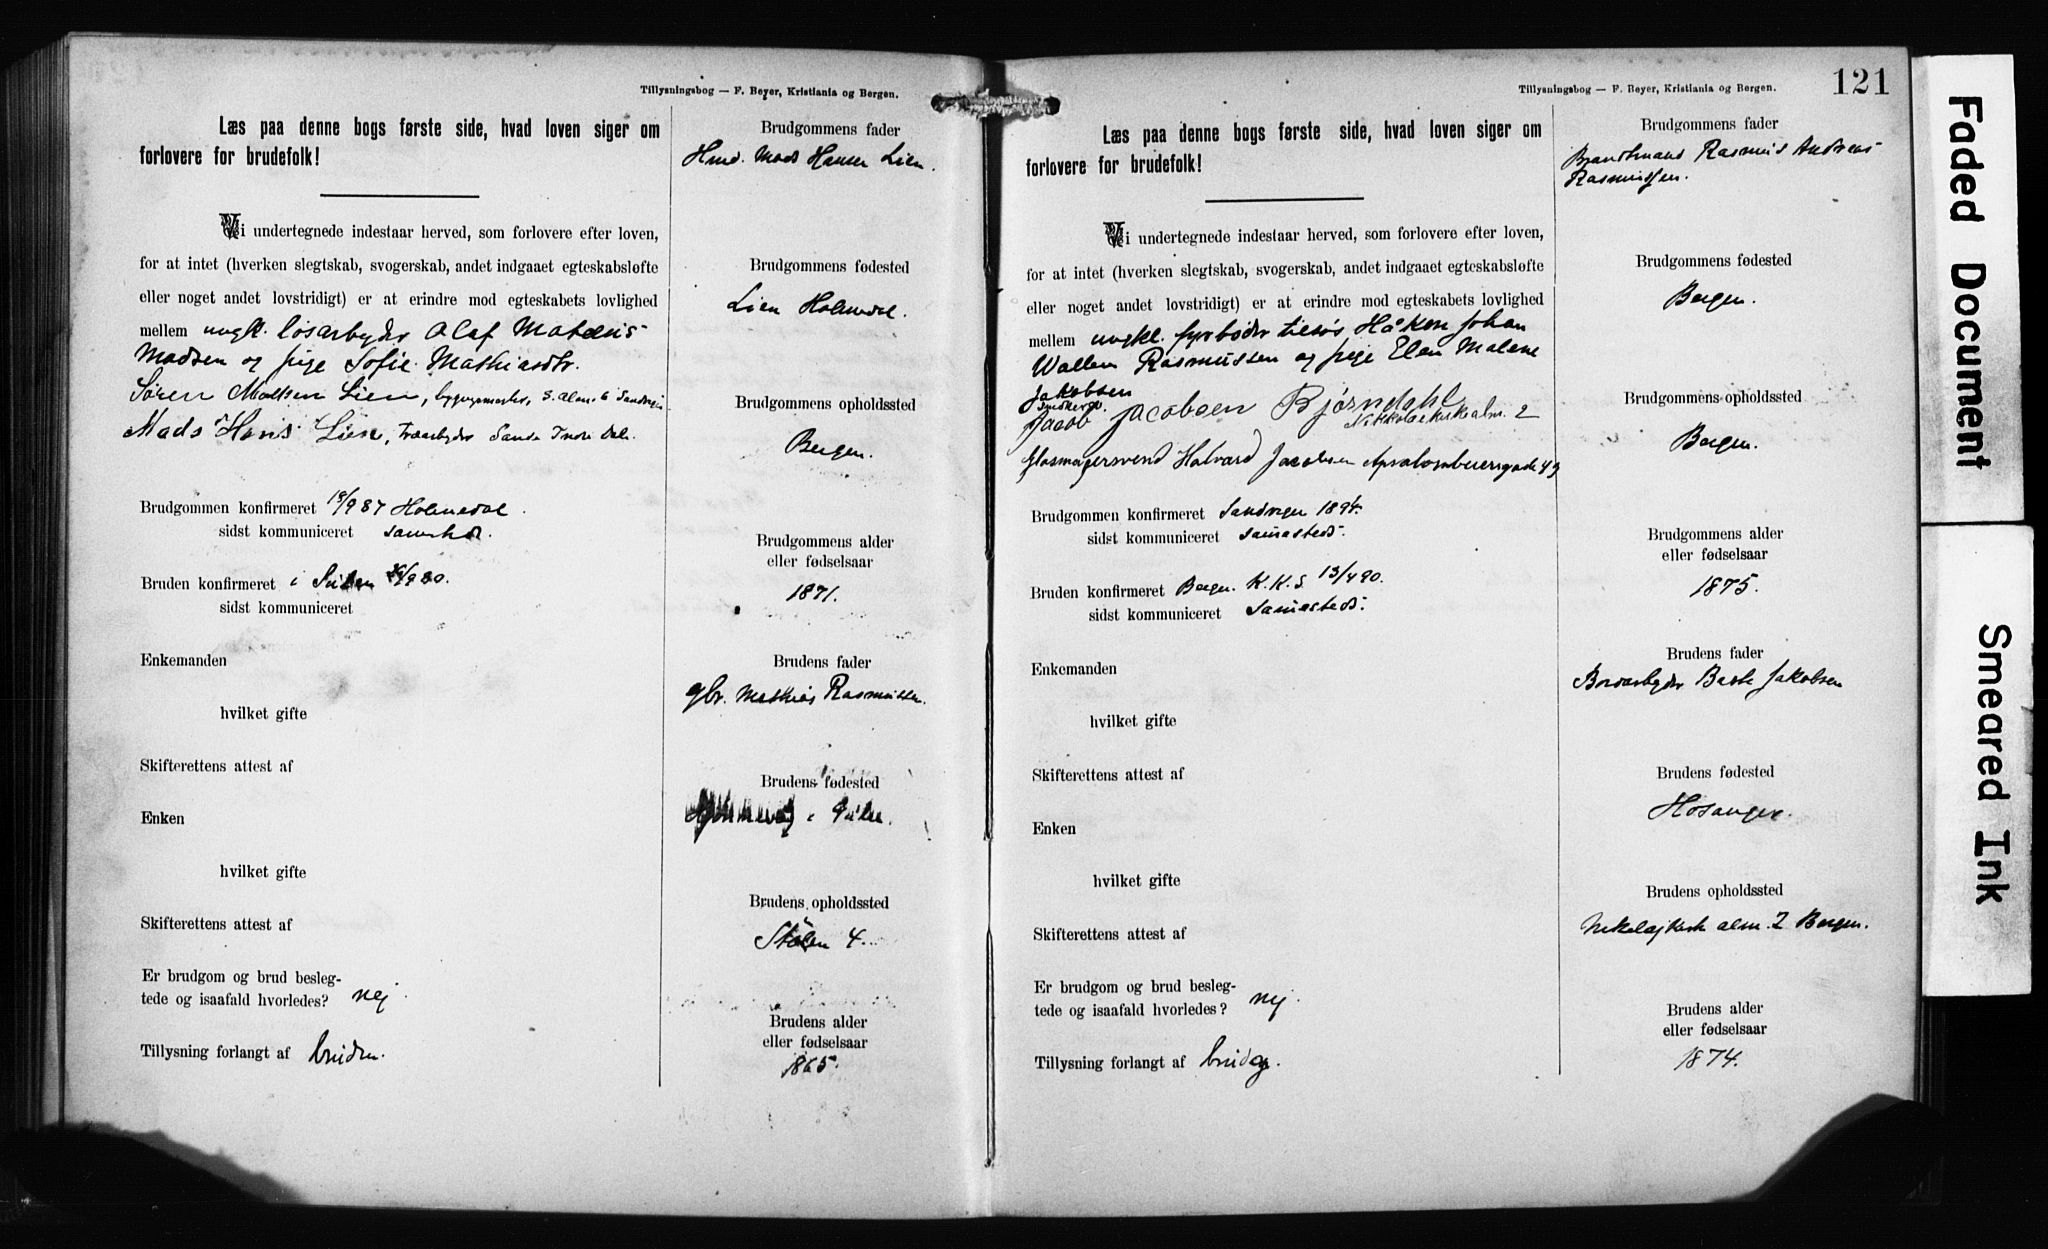 Tillysningsbog — F. Beyer, Kristiania og Bergen.
Læs paa denne bogs første side, hvad loven siger om
forlovere for brudefolk!
Vi undertegnede indestaar herved, som forlovere efter loven,
for at intet (hverken slegtskab, svogerskab, andet indgaaet egteskabsløfte
eller noget andet lovstridigt) er at erindre mod egteskabets lovlighed
mellem ungk. løsarbyder Olaf
Madsen og pige Sofie Mathiasdtr.
Søren Madsen Lien, 6 Sandvigen
Mads Hans Lien, Indre Dale
Brudgommen konfirmeret 18/9 87 Holmedal.
sidst kommuniceret samsteds.
Bruden konfirmeret i 80.
sidst kommuniceret
Enkemanden
hvilket gifte
Skifterettens attest af
Enken
hvilket gifte
Skifterettens attest af
Er brudgom og brud besleg-
tede og isaafald hvorledes? nej.
Tillysning forlangt af bruden.
Brudgommens fader
Mads Hansen Lien.
Brudgommens fødested
Lien Holmedal.
Brudgommens opholdssted
Bergen.
Brudgommens alder
eller fødselsaar
1871.
Brudens fader
gbr. Mathias Rasmussen.
Brudens fødested
i
Brudens opholdssted
Stølen 4.
Brudens alder
eller fødselsaar
1865.
Tillysningsbog — F. Beyer, Kristiania og Bergen.
121
Læs paa denne bogs første side, hvad loven siger om
forlovere for brudefolk!
Vi undertegnede indestaar herved, som forlovere efter loven,
for at intet (hverken slegtskab, svogerskab, andet indgaaet egteskabsløfte
eller noget andet lovstridigt) er at erindre mod egteskabets lovlighed
mellem ungkl. fyrbøder tilsøs Håkon Johan
Wallem Rasmussen og pige Elen Malene
Jakobsen
Jacob Jacobsen Bjørndahl
Nikkolaikirkealm. 2
Glasmagersvend Halvard Jacobsen 49
Brudgommen konfirmeret Sandvigen 1894.
sidst kommuniceret sammesteds.
Bruden konfirmeret Bergen. K. K. S 13/4 90.
sidst kommuniceret Sammesteds.
Enkemanden
hvilket gifte
Skifterettens attest af
Enken
hvilket gifte
Skifterettens attest af
Er brudgom og brud besleg-
tede og isaafald hvorledes? nej.
Tillysning forlangt af brudg.
Brudgommens fader
Brandmand Rasmus Andreas
Rasmussen.
Brudgommens fødested
Bergen.
Brudgommens opholdssted
Bergen.
Brudgommens alder
eller fødselsaar
1875.
Brudens fader
Bordarbyder Jakobsen
Brudens fødested
Hosanger.
Brudens opholdssted
Nikolajkirk alm. 2 Bergen.
Brudens alder
eller fødselsaar
1874.
Faded Document
Smeared Ink